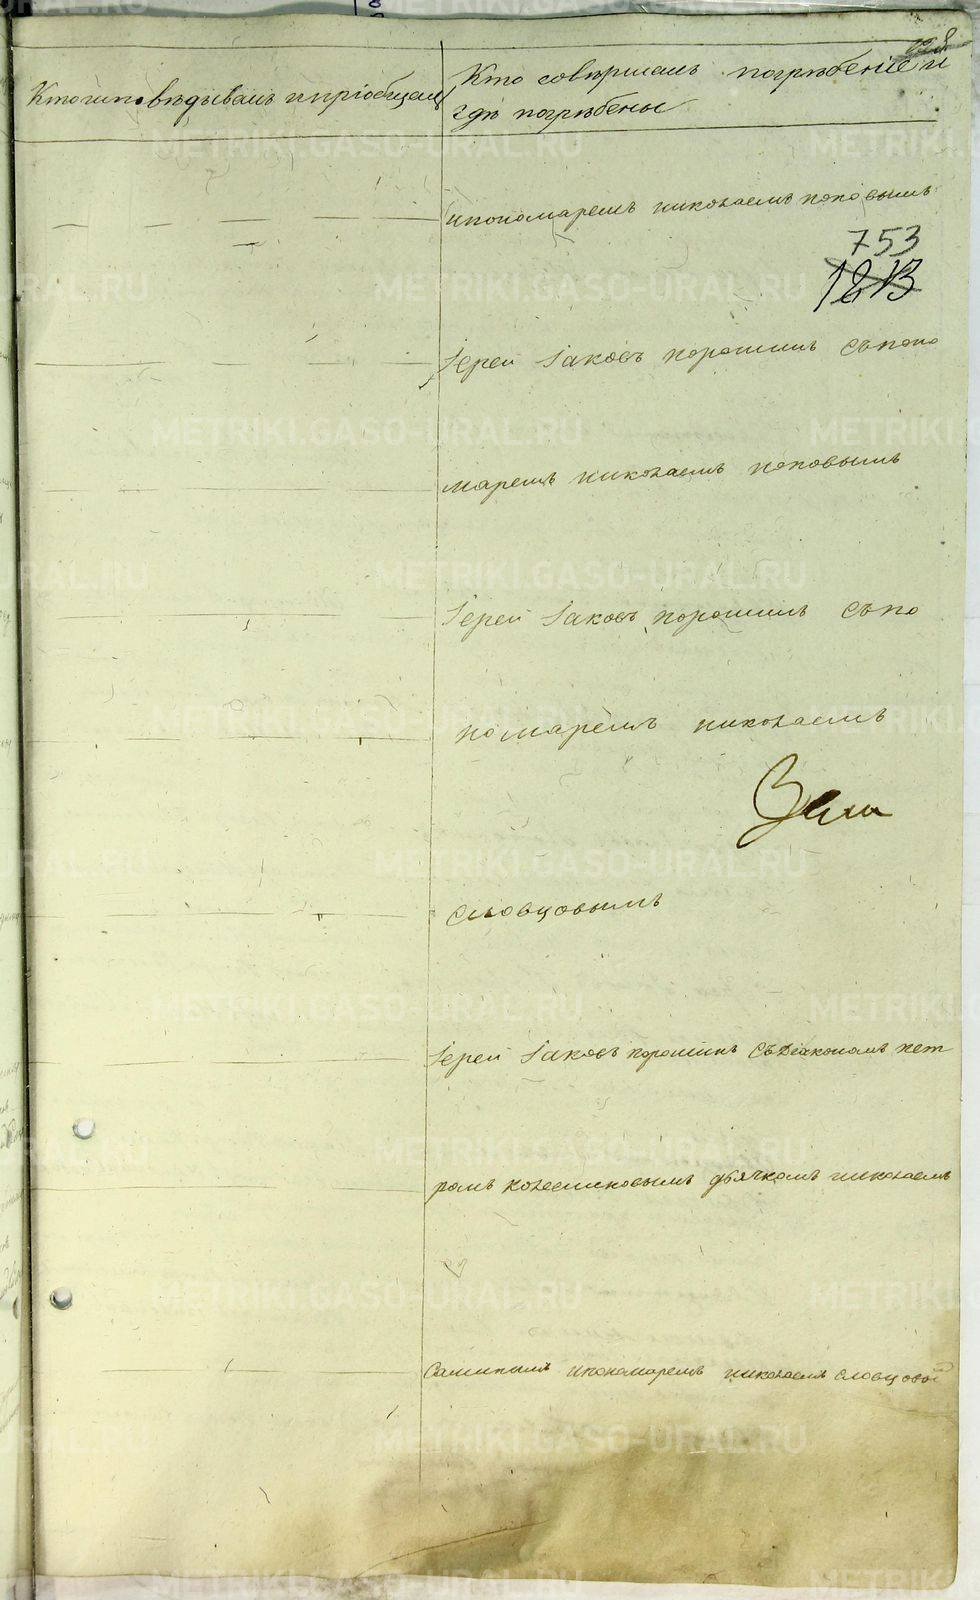 Кто исповѣдывалъ и пріобщалъ
Кто совершалъ погрѣбеніе и
гдѣ погрѣбены
ипономаремъ николаемъ поповымъ
753
1213
Іерей Іаковъ порошинъ съпоно
маремъ николаемъ поповымъ
Іерей Іаковъ порошинъ съпо
номаремъ николаемъ
словцовымъ
Іерей Іаковъ порошинъ съдіакономъ пет
ромъ колесниковымъ дьячкомъ николаемъ
ипономаремъ николаемъ словцовой
METRIKI.GASO-URAL.RU